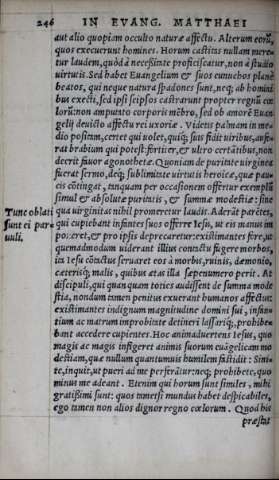 246 IN EVANG. MATTHAEI
aut alio quopiam occulto naturæ affectu. Alterum eorũ,
quos execuerunt homines. Horum castitas nullam mere-
tur laudem, quòd à necessitate proficiscatur, non à studio
uirtutis. Sed habet Euangelium & suos eunuchos planè
beatos, qui neque natura spadones sunt, neq; ab homini
bus execti, sed ipsi seipsos castrarunt propter regnũ cœ
lorũ: non amputato corporis mẽbro, sed ob amorẽ Euan-
gelij deuicto affectu rei uxoriæ. Videtis palmam in me-
dio positam, certet qui uolet, quiq; suis fidit uiribus, aufe-
rat brabium qui potest: fortiter, & ultro certãtibus, non
decrit fauor agonothetæ. Quoniam de puritate uirginea
fuerat sermo, deq; sublimitate uirtutis heroicæ, quæ pau-
cis cõtingat, tanquam per occasionem offertur exemplũ
simul & absolutæ puritatis, & summæ modestiæ: sine
qua uirginitas nihil promeretur laudis. Aderãt parẽtes,
Tunc oblati qui cupiebant infantes suos offerre Iesu, ut eis manus im
sunt ei par poneret, & pro ipsis deprecaretur: existimantes fore, ut
uuli. quemadmodum uiderant illius contactu fugere morbos,
ita Iesu cõtactus seruaret eos à morbis, ruinis, dæmonio,
cæterisq; malis, quibus ætas illa sæpenumero perit. At
discipuli, qui quanquam toties audissent de summa mode
stia, nondum tamen penitus exuerant humanos affectus:
existimantes indignum magnitudine domini sui, infan-
tium ac matrum improbitate detineri lassariq;, prohibe-
bant accedere cupientes. Hoc animaduertens Iesus, quo
magis ac magis infigeret animis suorum euãgelicam mo
destiam, quæ nullum quantumuis humilem fastidit: Sini-
te, inquit, ut pueri ad me perferãtur: neq; prohibete, quo
minus me adeant. Etenim qui horum sunt similes, mihi
gratissimi sunt: quos tametsi mundus habet despicabiles,
ego tamen non alios dignor regno cœlorum. Quod his
præstat